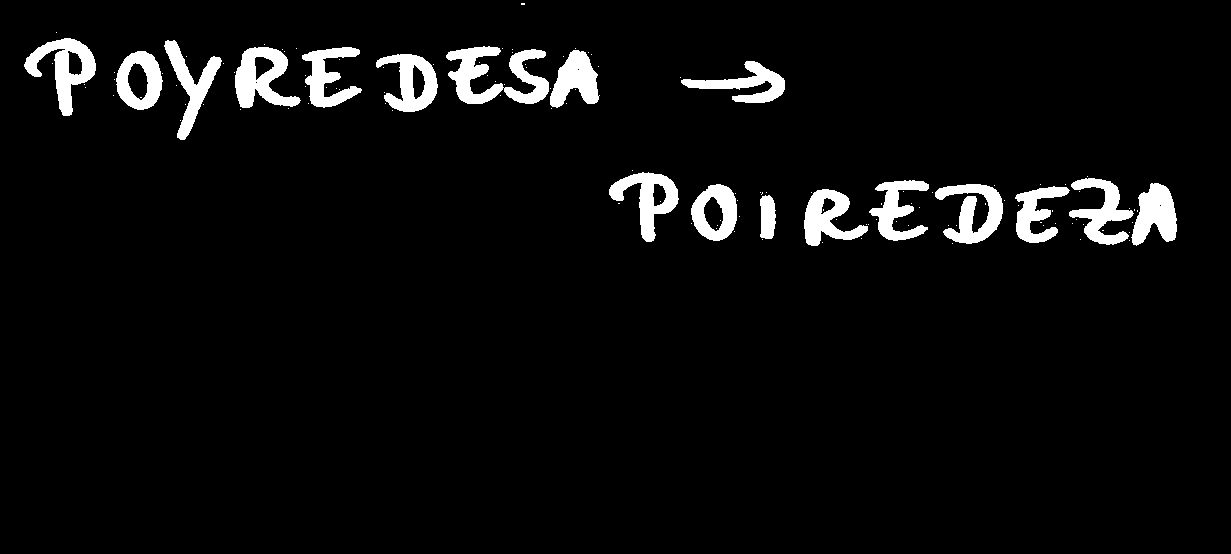 POYREDESA →
POIREDEZA